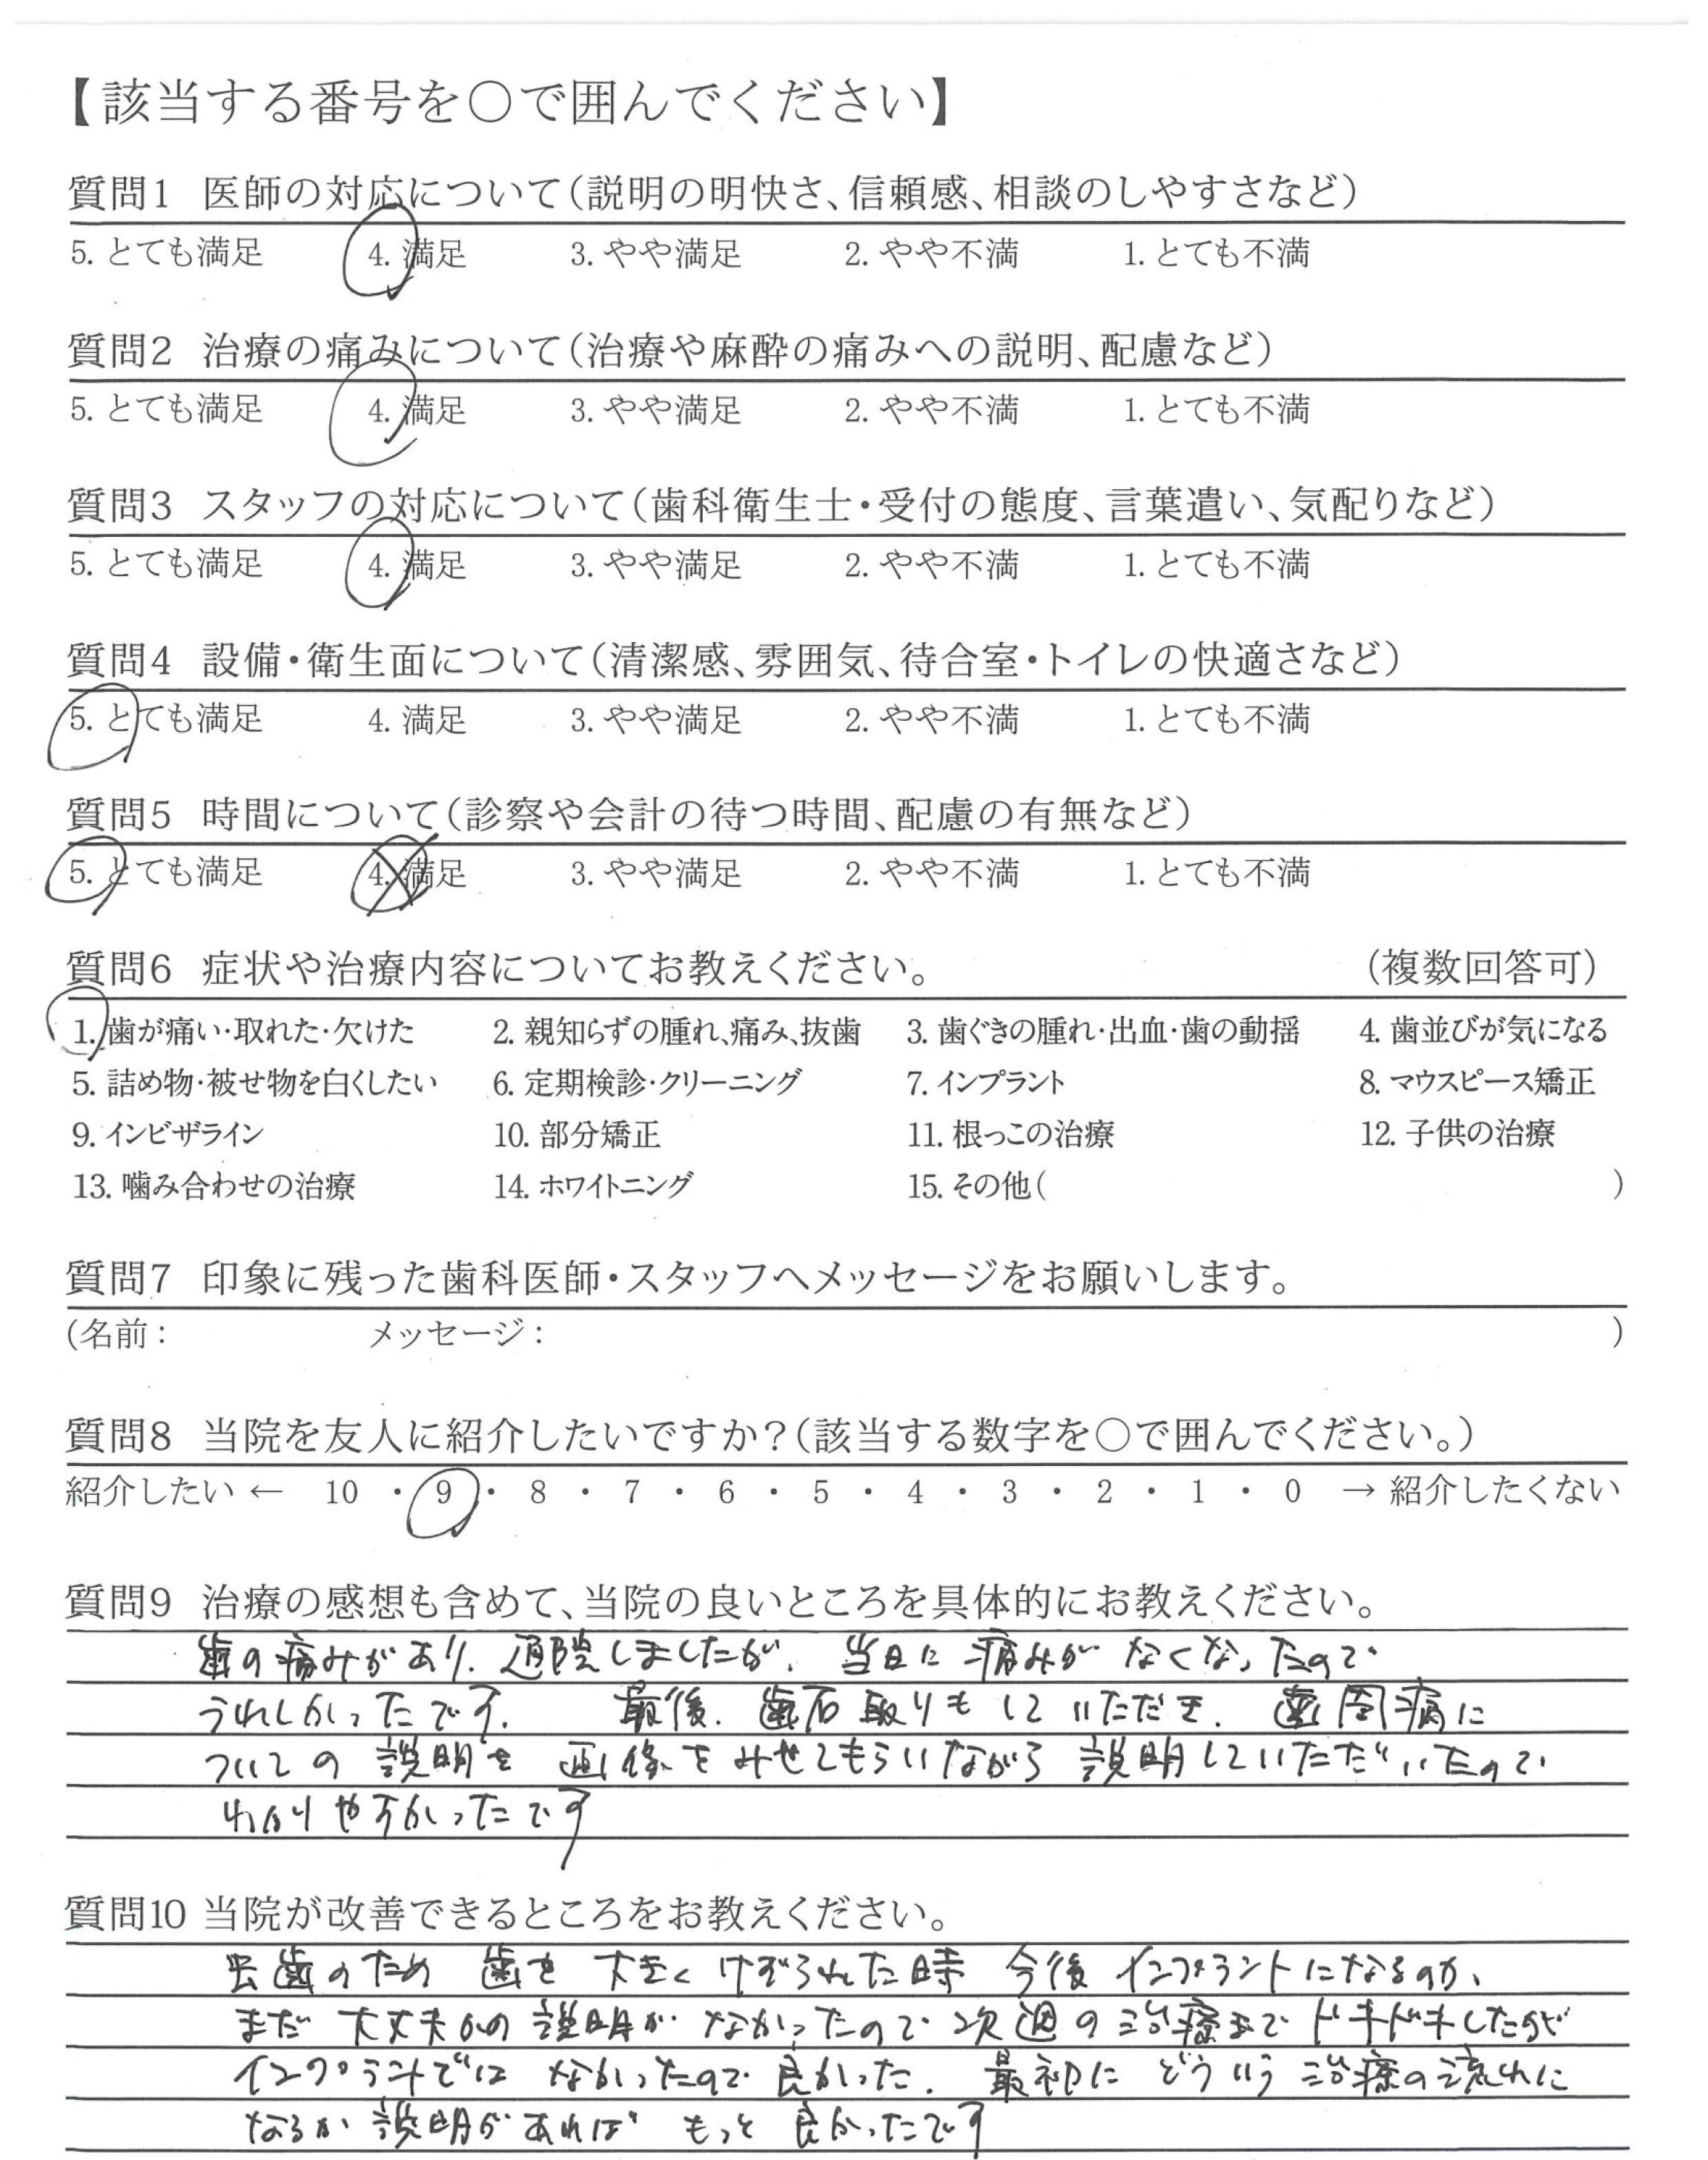 【該当する番号を○で囲んでください】
質問1 医師の対応について(説明の明快さ、信頼感、相談のしやすさなど)
5. とても満足 4. 満足 3. やや満足 2. やや不満 1. とても不満
質問2 治療の痛みについて(治療や麻酔の痛みへの説明、配慮など)
5. とても満足 4. 満足 3. やや満足 2. やや不満 1. とても不満
質問3 スタッフの対応について(歯科衛生士・受付の態度、言葉遣い、気配りなど)
5. とても満足 4. 満足 3. やや満足 2. やや不満 1. とても不満
質問4 設備・衛生面について(清潔感、雰囲気、待合室・トイレの快適さなど)
5. とても満足 4. 満足 3. やや満足 2. やや不満 1. とても不満
質問5 時間について(診察や会計の待つ時間、配慮の有無など)
5. とても満足 4. 満足 3. やや満足 2. やや不満 1. とても不満
質問6 症状や治療内容についてお教えください。 (複数回答可)
1. 歯が痛い・取れた・欠けた 2. 親知らずの腫れ、痛み、抜歯 3. 歯ぐきの腫れ・出血・歯の動揺 4. 歯並びが気になる
5. 詰め物・被せ物を白くしたい 6. 定期検診・クリーニング 7. インプラント 8. マウスピース矯正
9. インビザライン 10. 部分矯正 11. 根っこの治療 12. 子供の治療
13. 噛み合わせの治療 14. ホワイトニング 15. その他( )
質問7 印象に残った歯科医師・スタッフへメッセージをお願いします。
(名前: メッセージ: )
質問8 当院を友人に紹介したいですか?(該当する数字を○で囲んでください。)
紹介したい ← 10 ・ 9 ・ 8 ・ 7 ・ 6 ・ 5 ・ 4 ・ 3 ・ 2 ・ 1 ・ 0 → 紹介したくない
質問9 治療の感想も含めて、当院の良いところを具体的にお教えください。
歯の痛みがあり、通院しましたが、当日に痛みがなくなったので
うれしかったです。 最後、歯石取りもしていただき、歯周病に
ついての説明を画像をみせてもらいながら説明していただいたので
わかりやすかったです
質問10 当院が改善できるところをお教えください。
虫歯のため 歯を大きくけずられた時 今後インプラントになるのか、
まだ大丈夫かの説明がなかったので次週の治療までドキドキしたが
インプラントではなかったので良かった。最初にどういう治療の流れに
なるか説明があればもっと良かったです